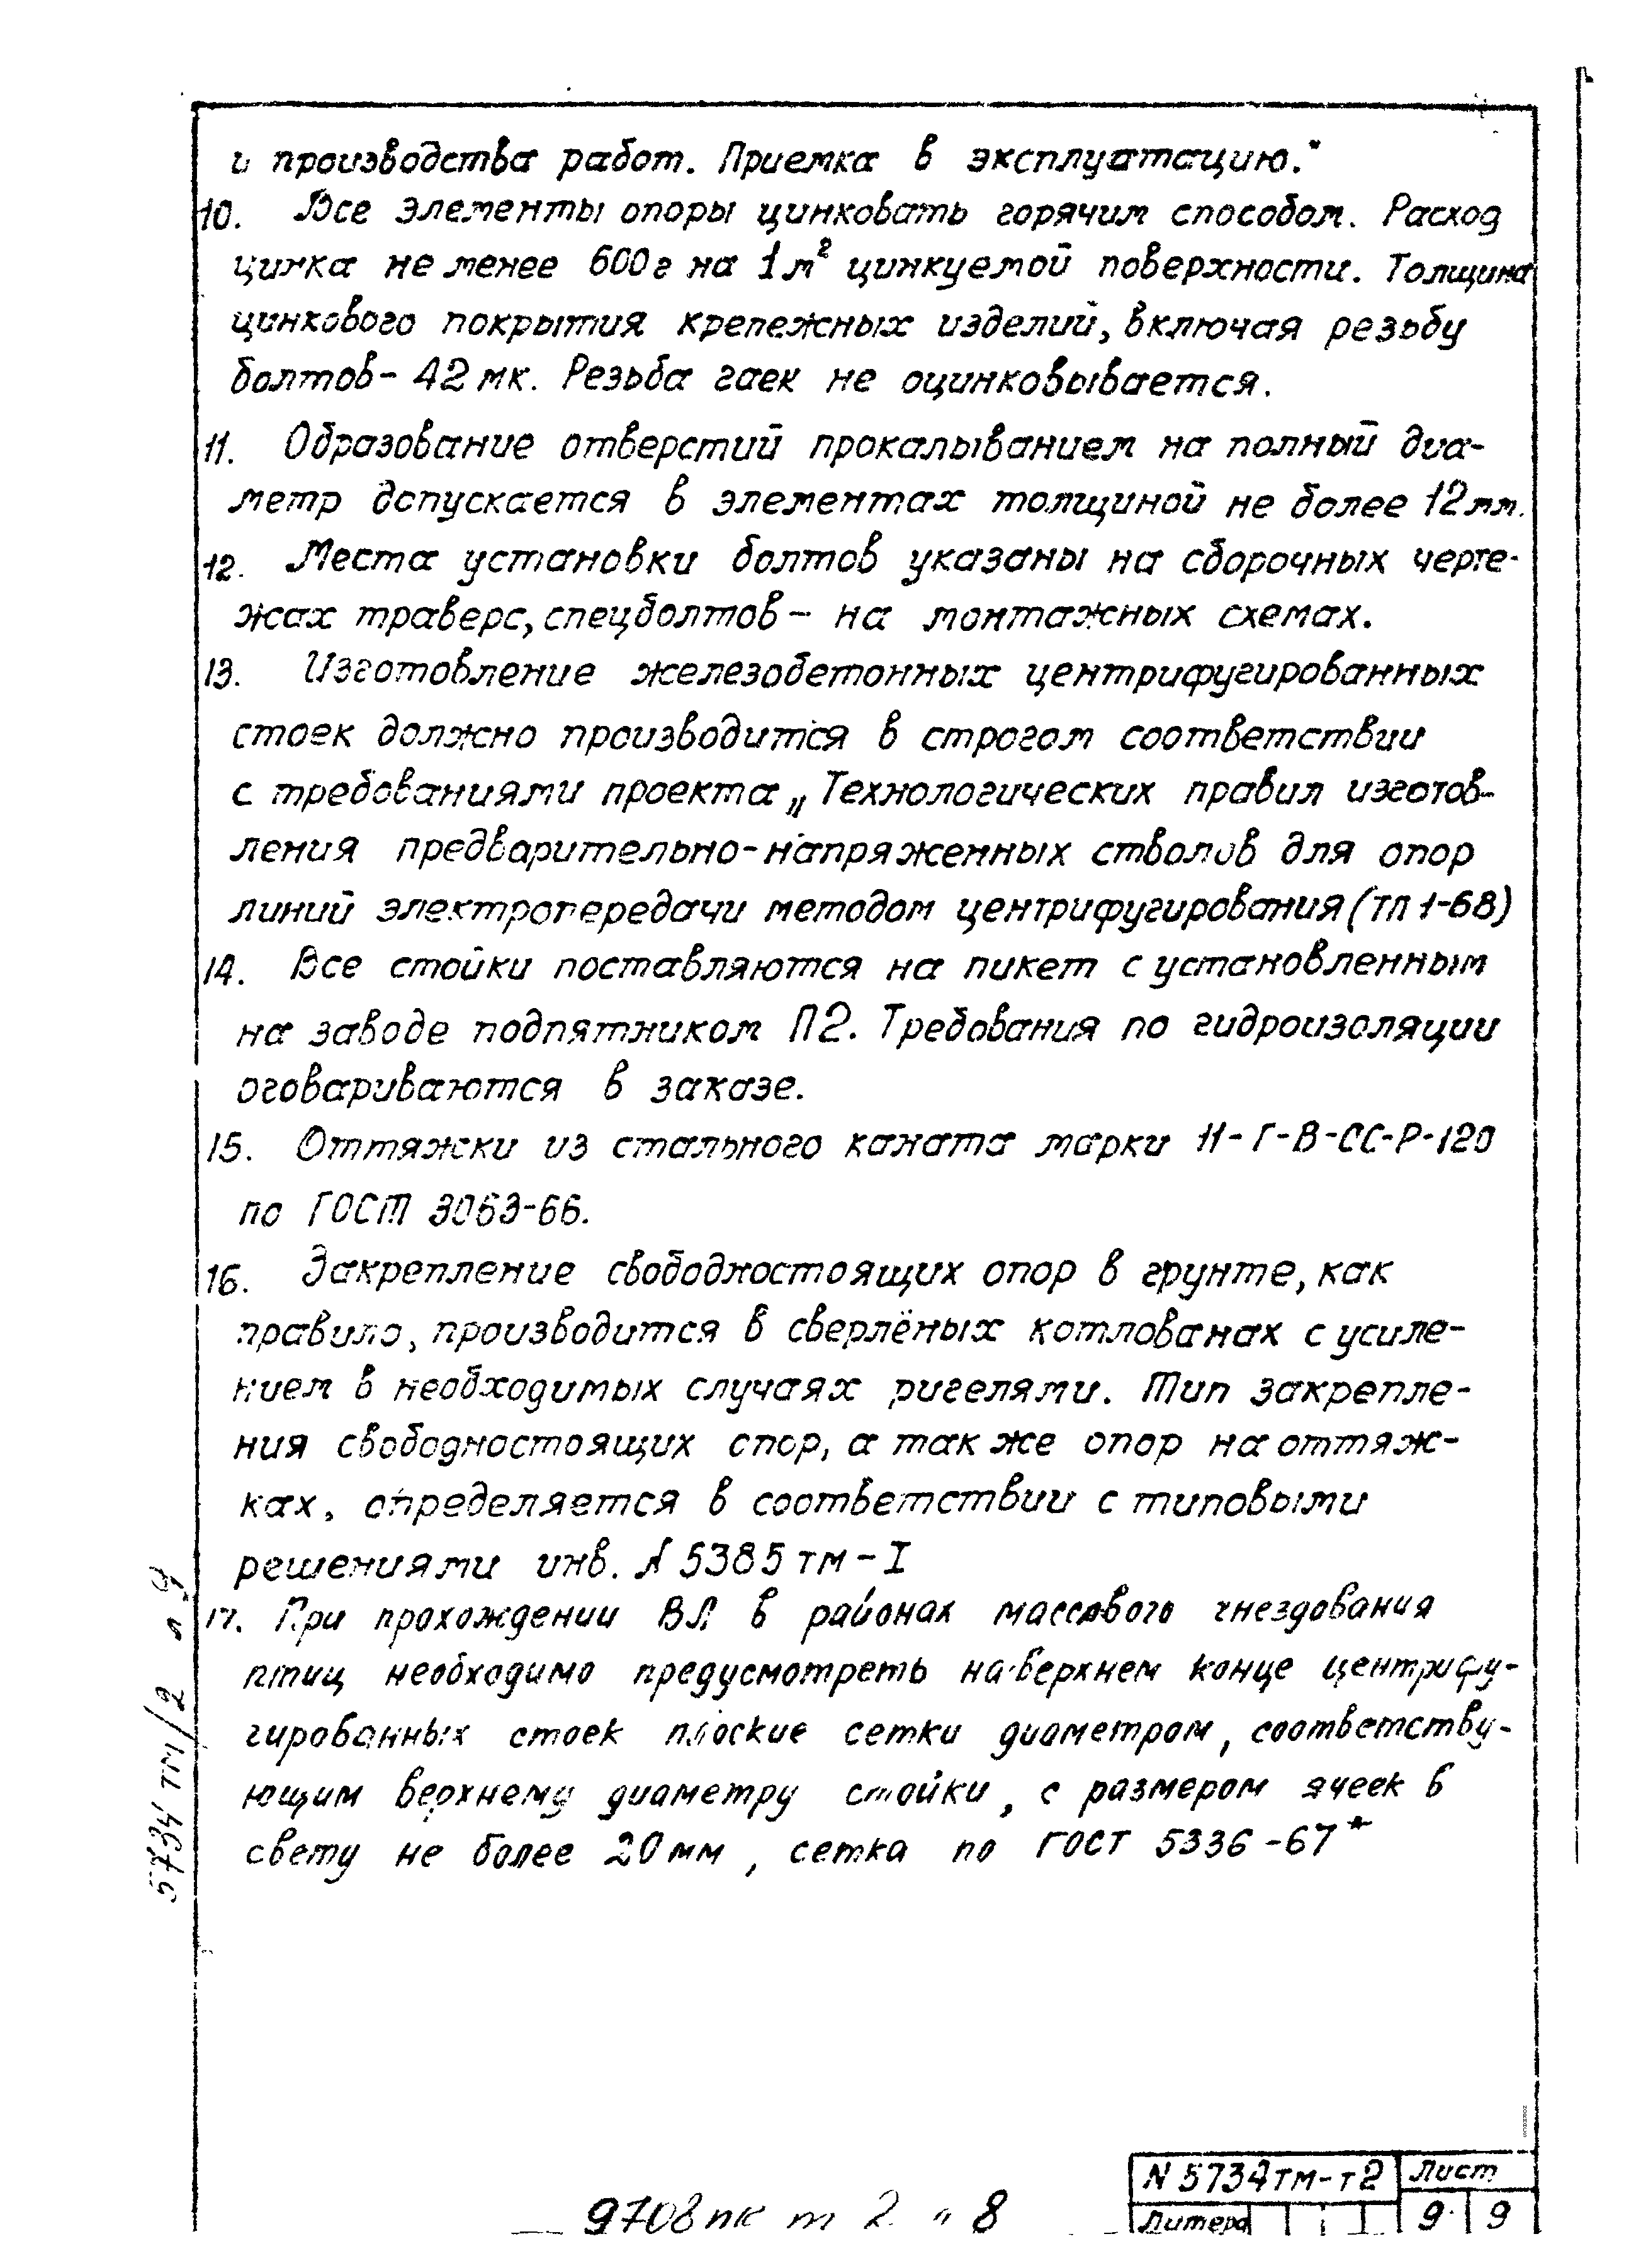 и производства работ. Приемка в эксплуатацию."
10. Все элементы опоры цинковать горячим способом. Расход
цинка не менее 600г на 1м² цинкуемой поверхности. Толщина
цинкового покрытия крепежных изделий, включая резьбу
болтов- 42мк. Резьба гаек не оцинковывается.
11. Образование отверстий прокалыванием на полный диа-
метр допускается в элементах толщиной не более 12мм.
12. Места установки болтов указаны на сборочных черте-
жах траверс, спецболтов – на монтажных схемах.
13. Изготовление железобетонных центрифугированных
стоек должно производится в строгом соответствии
с требованиями проекта „Технологических правил изготов-
ления предварительно-напряженных стволов для опор
линий электропередачи методом центрифугирования (ТП 1-68)
14. Все стойки поставляются на пикет с установленным
на заводе подпятником П2. Требования по гидроизоляции
оговариваются в заказе.
15. Оттяжки из стального каната марки 11-Г-В-СС-Р-120
по ГОСТ 3063-66.
16. Закрепление свободностоящих опор в грунте, как
правило, производится в сверлёных котлованах с усиле-
нием в необходимых случаях ригелями. Тип закрепле-
ния свободностоящих опор, а так же опор на оттяж-
ках, определяется в соответствии с типовыми
решениями инв. № 5385тм-I
17. При прохождении ВЛ в районах массового гнездования
птиц необходимо предусмотреть на верхнем конце центрифу-
гированных стоек плоские сетки диаметром, соответству-
ющим верхнему диаметру стойки, с размером ячеек в
свету не более 20мм, сетка по ГОСТ 5336-67*
5734тм/2 л 9
N 5734тм-т2 Лист
Литера 9 9
9708пк т 2 8